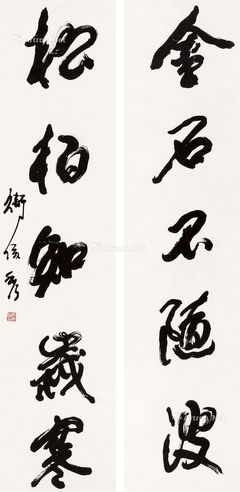 金石不随波
松柏知岁寒
卫俊秀